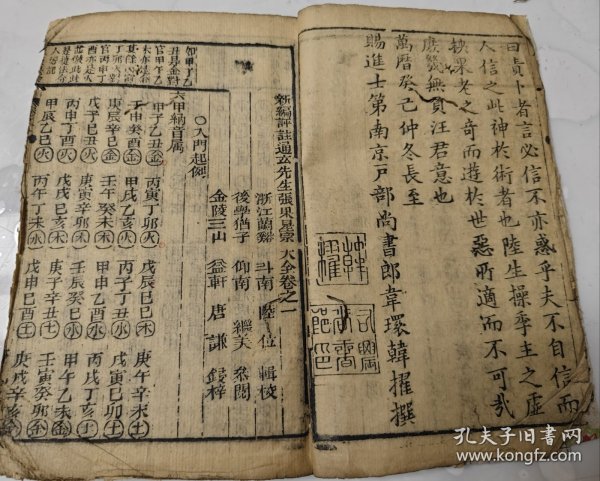 曰責卜者言必信不亦惑乎夫不自信而
人信之此神於術者也陸生操季主之虛
挾果老之奇而遊於世惡所適而不可哉
庶幾無負汪君意也
萬曆癸巳仲冬長至
賜進士第南京戶部尚書郎韋環韓擢撰
新編評註通玄先生張果星宗大全卷之一
浙江蘭谿 斗南 陸位 輯校
後學猶子 仰南 繼美 參閱
金陵三山 益軒 唐謙 鋟梓
○入門起例
六甲納音屬
甲子乙丑金 丙寅丁卯火 戊辰己巳木 庚午辛未土
壬申癸酉金 甲戌乙亥火 丙子丁丑水 戊寅己卯土
庚辰辛巳金 壬午癸未木 甲申乙酉水 丙戌丁亥土
戊子己丑火 庚寅辛卯木 壬辰癸巳水 甲午乙未金
丙申丁酉火 戊戌己亥木 庚子辛丑土 壬寅癸卯金
甲辰乙巳火 丙午丁未水 戊申己酉土 庚戌辛亥
如甲子乙
丑是金對
孔夫子旧书网
www.kongfz.com